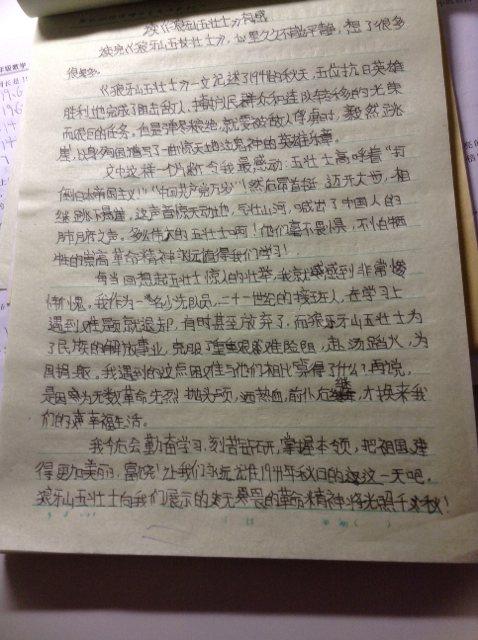 读《狼牙山五壮士》有感
读完《狼牙山五壮士》,心里久久不能平静,想了很多
很多。
《狼牙山五壮士》一文记述了1941年秋天,五位抗日英雄
胜利地完成了阻击敌人,掩护民群众和连队转移的光荣
而艰巨的任务。但是弹尽粮绝,就要被敌人俘虏时,毅然跳
崖,以身殉国谱写了一曲惊天地泣鬼神的英雄乐章。
文中这样一个片断令我最感动:五壮士高呼着"打
倒日本帝国主义!""中国共产党万岁!"然后昂首挺 迈开大步,相
继跳下悬崖,这声音惊天动地,气壮山河,喊出了中国人的
。多么伟大的五壮士啊!他们毫不畏惧,不怕牺
牲的崇高革命精神永远值得我们学习!
每当回想起五壮士惊人的壮举,我就感到非常惭
愧,我作为一名少先队员,二十一世纪的接班人,在学习上
遇到难题就退却,有时甚至放弃了,而狼牙山五壮士为
了民族的解放事业,克服了重重艰难险阻,赴汤蹈火,为
国捐躯。我遇到的这点困难与他们相比算得了什么?再说,
是因为无数革命先烈抛头颅,洒热血,前仆后继,才换来我
们的幸福生活。
我今后会勤奋学习,刻苦钻研,掌握本领,把祖国建
得更加美丽,富饶!让我们永远记住1941年秋日的这一天吧,
狼牙山五壮士向我们展示的大无畏的革命精神将光照千秋!